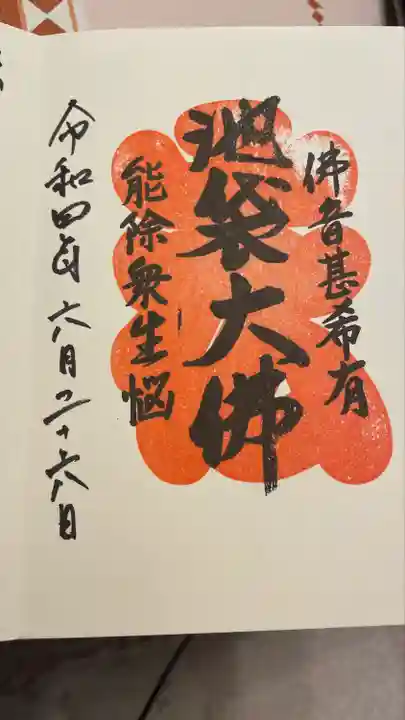 佛音甚希有
池袋大佛
能除衆生悩
令和四年六月二十六日